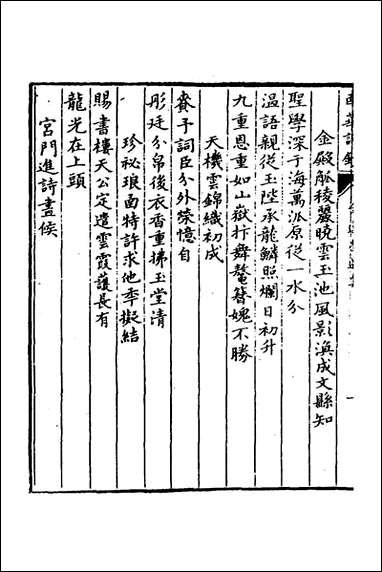 金殿觚稜麗曉雲玉池風影渙成文縣知
聖學深于海萬派原從一水分
溫語親從玉陛承龍鱗照爛日初升
九重恩重如山嶽抃舞鼇簪媿不勝
天機雲錦織初成
賚予詞臣分外榮憶自
彤廷分帛後衣香重拂玉堂清
珍祕琅函特許求他年擬結
賜書樓天公定遣雲霞護長有
龍光在上頭
宮門進詩晝候